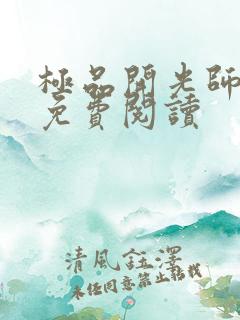 極品開光師
免費閱讀
清風鈺澤
未任同意禁止轉載